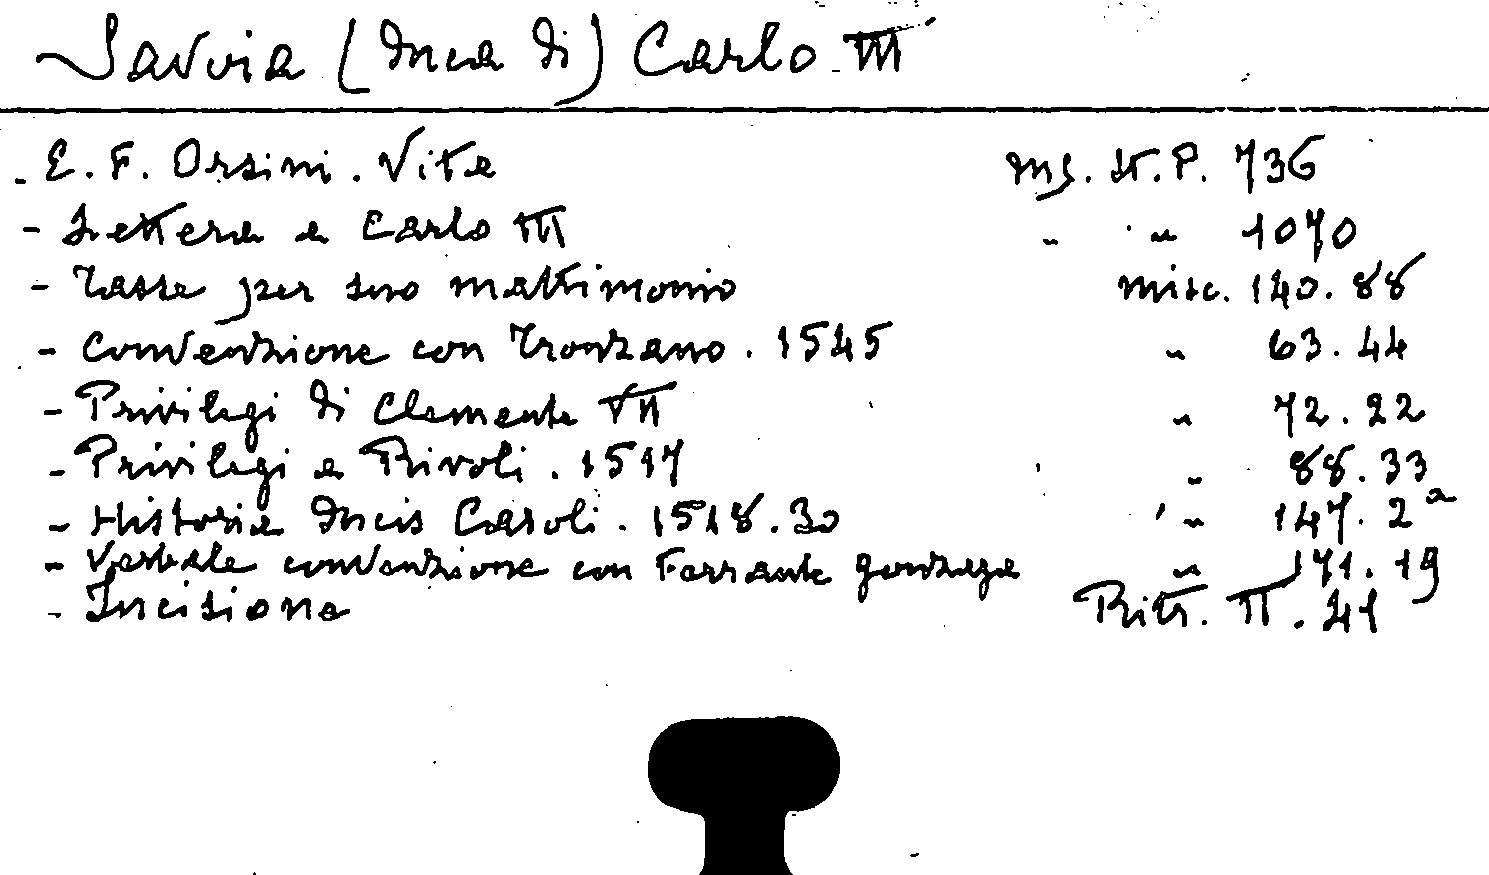 Savoia (Duca di) Carlo III
- E. F. Orsini. Vita Ms. St. P. 736
- Lettera a Carlo III " " 1070
- Tasse per suo matrimonio Misc. 140. 88
- Convenzione con Tronzano. 1545 " 63. 44
- Privilegi di Clemente VII " 72. 22
- Privilegi a Rivoli. 1517 " 88. 33
- Historia Ducis Caroli. 1518. 30 " 147. 2ª
- Verbale convenzione con Ferrante Gonzaga " 171. 19
- Incisione Ritr. II. 21